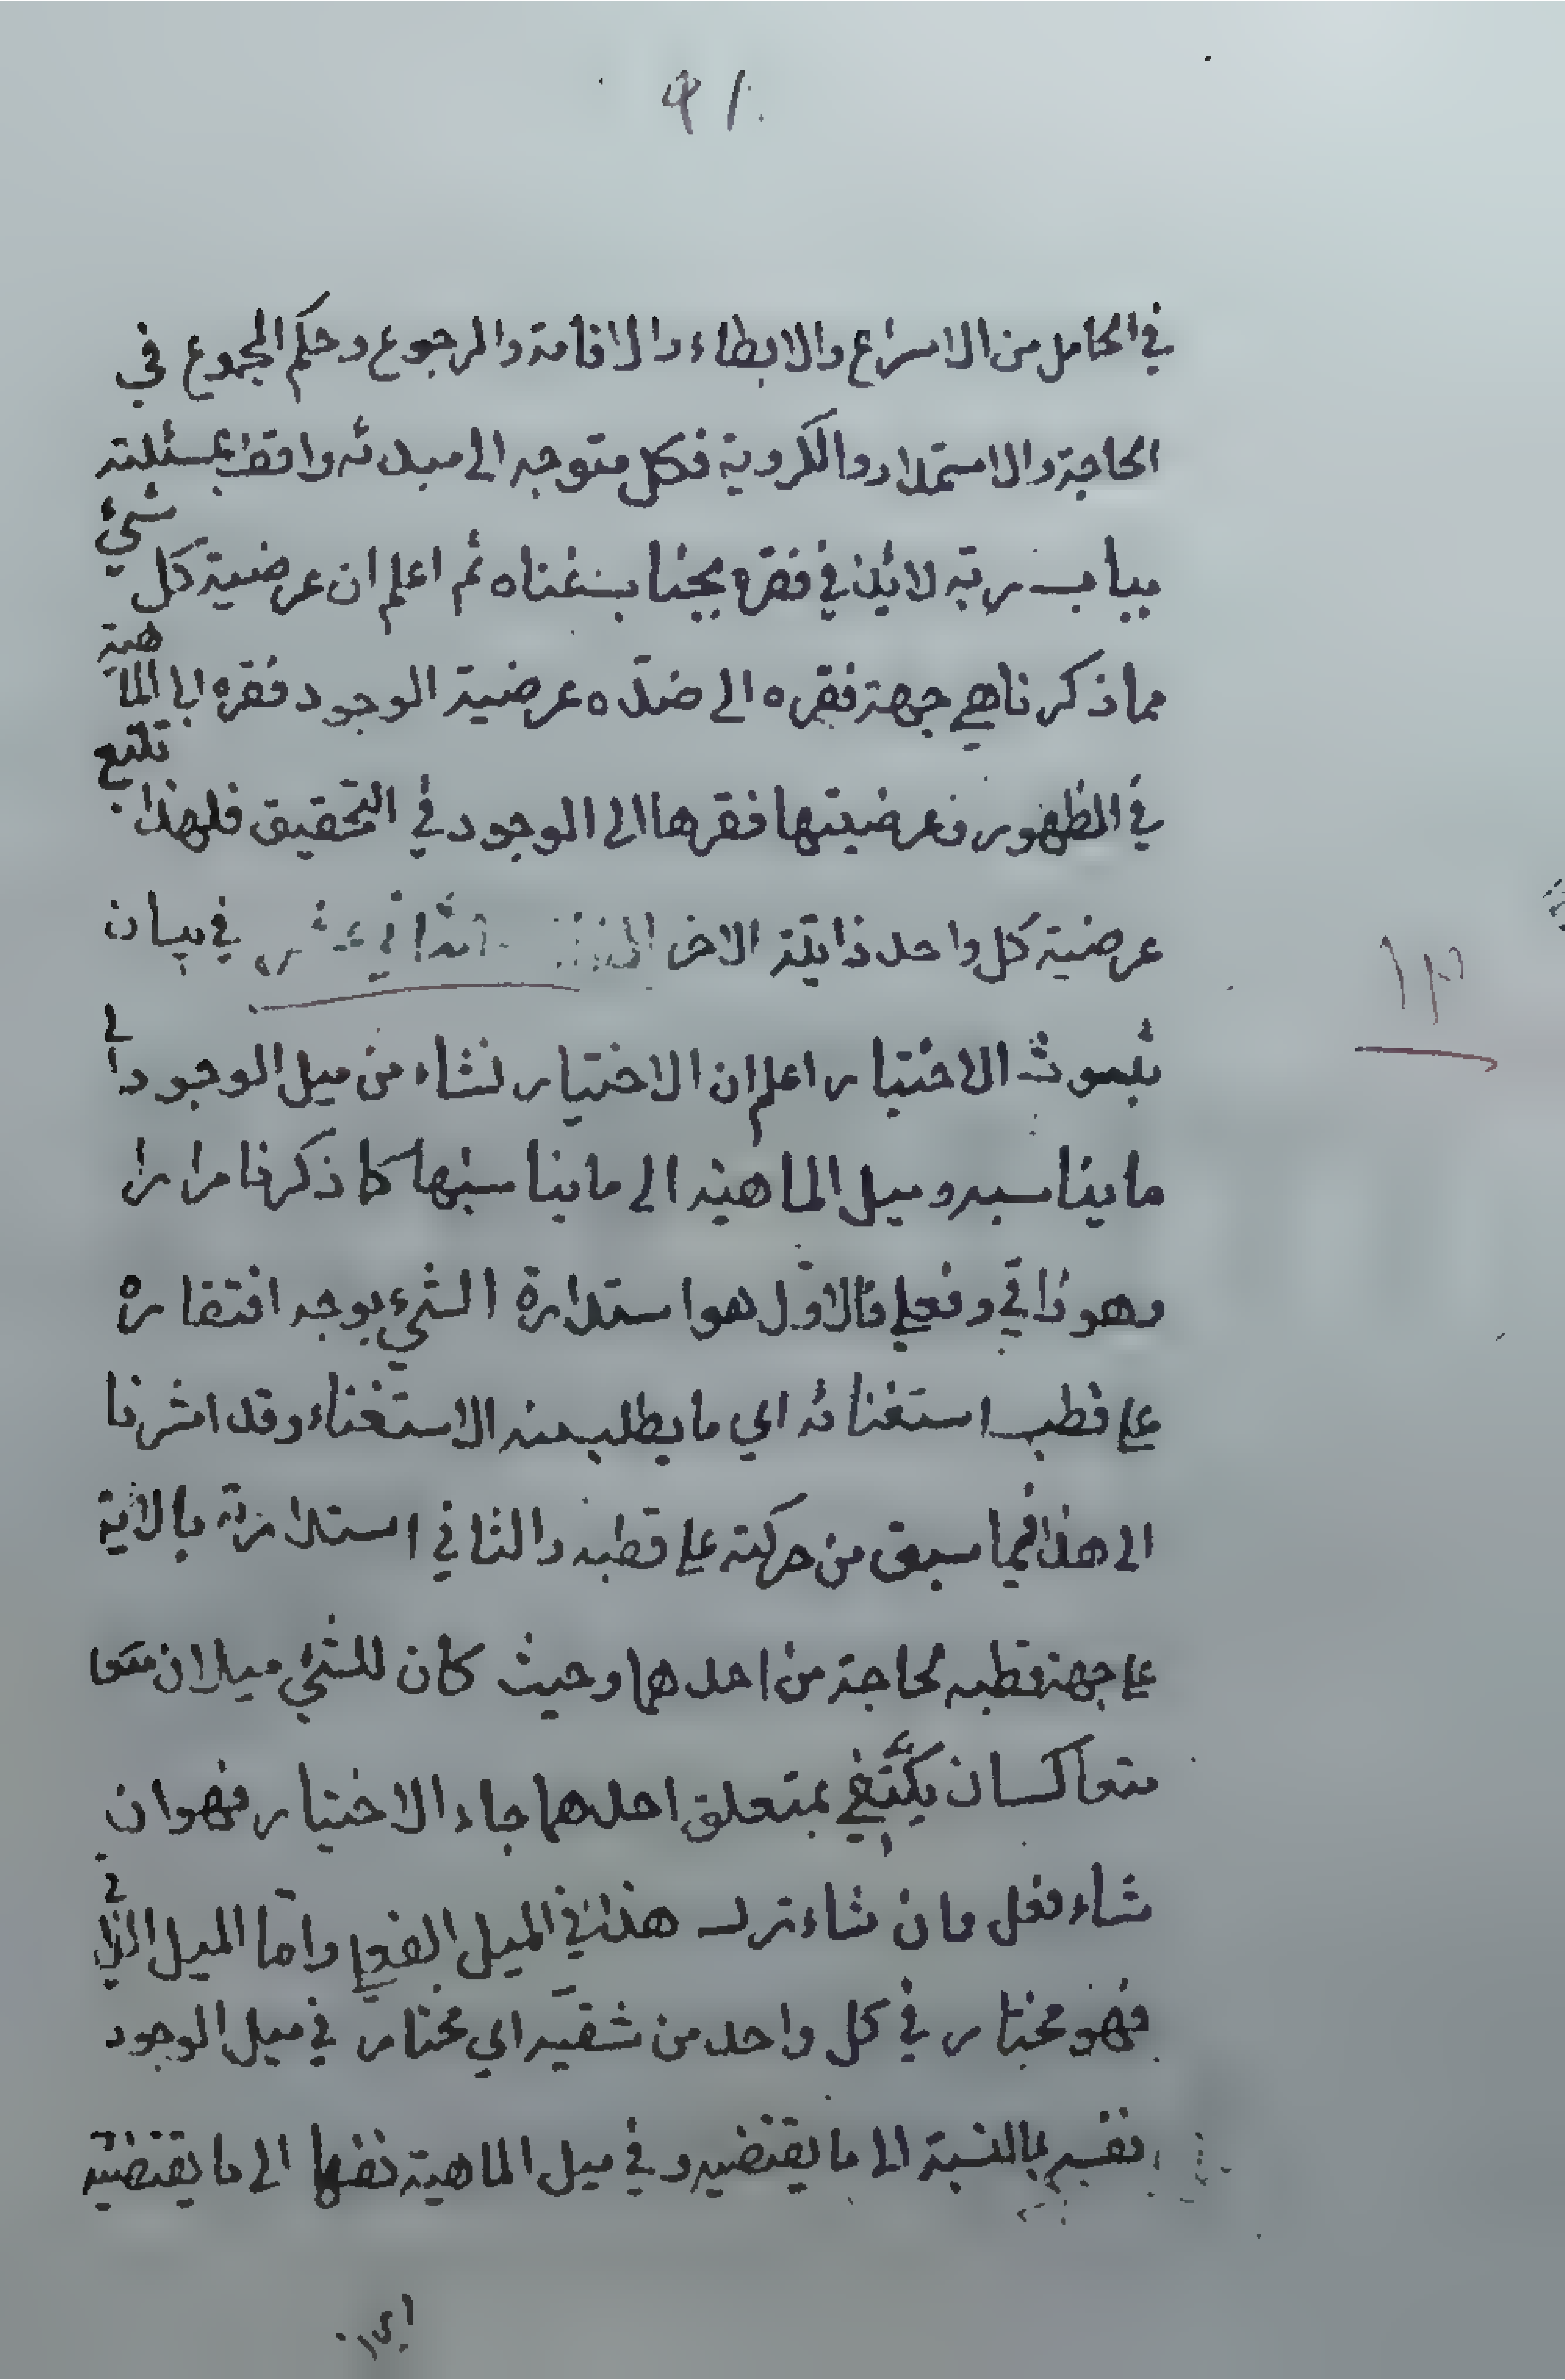 ٩١
في الحامل من الاسراع والابطاء والاقامة والرجوع وحكم المجموع في
الحاجة والاستمداد والكروية فكل متوجه الى مبدئه واقف بمسئلته
بباب ربه لائذ في فقره بجناب غناه ثم اعلم ان عرضية كل شيء
مما ذكرنا هي جهة فقره الى ضده عرضية الوجود فقره الى الماهية
في الظهور وعرضيتها فقرها الى الوجود في التحقيق فلهذا تتبع
عرضية كل واحد ذاتية الاخر الثاني عشر في بيان
١٢
ثبوت الاختيار اعلم ان الاختيار نشاء من ميل الوجود الى
ما يناسبه وميل الماهية الى ما يناسبها كما ذكرنا مرارا
وهو ذاتي وفعلي فالاول هو استدارة الشيء بوجه افتقاره
على قطب استغنائه اي ما يطلب منه الاستغناء وقد اشرنا
الى هذا فيما سبق من حركته على قطبه والثاني استدارته بالاية
على جهة قطبه لحاجة من احدهما وحيث كان للشيء ميلان
متعاكسان يكتفي بمتعلق احدهما جاء الاختيار فهو ان
شاء فعل وان شاء ترك هذا في الميل الفعلي واما الميل الذاتي
فهو مختار في كل واحد من شقيه اي مختار في ميل الوجود
نفسه بالنسبة الى ما يقتضيه وفي ميل الماهية نفسها الى ما يقتضيه